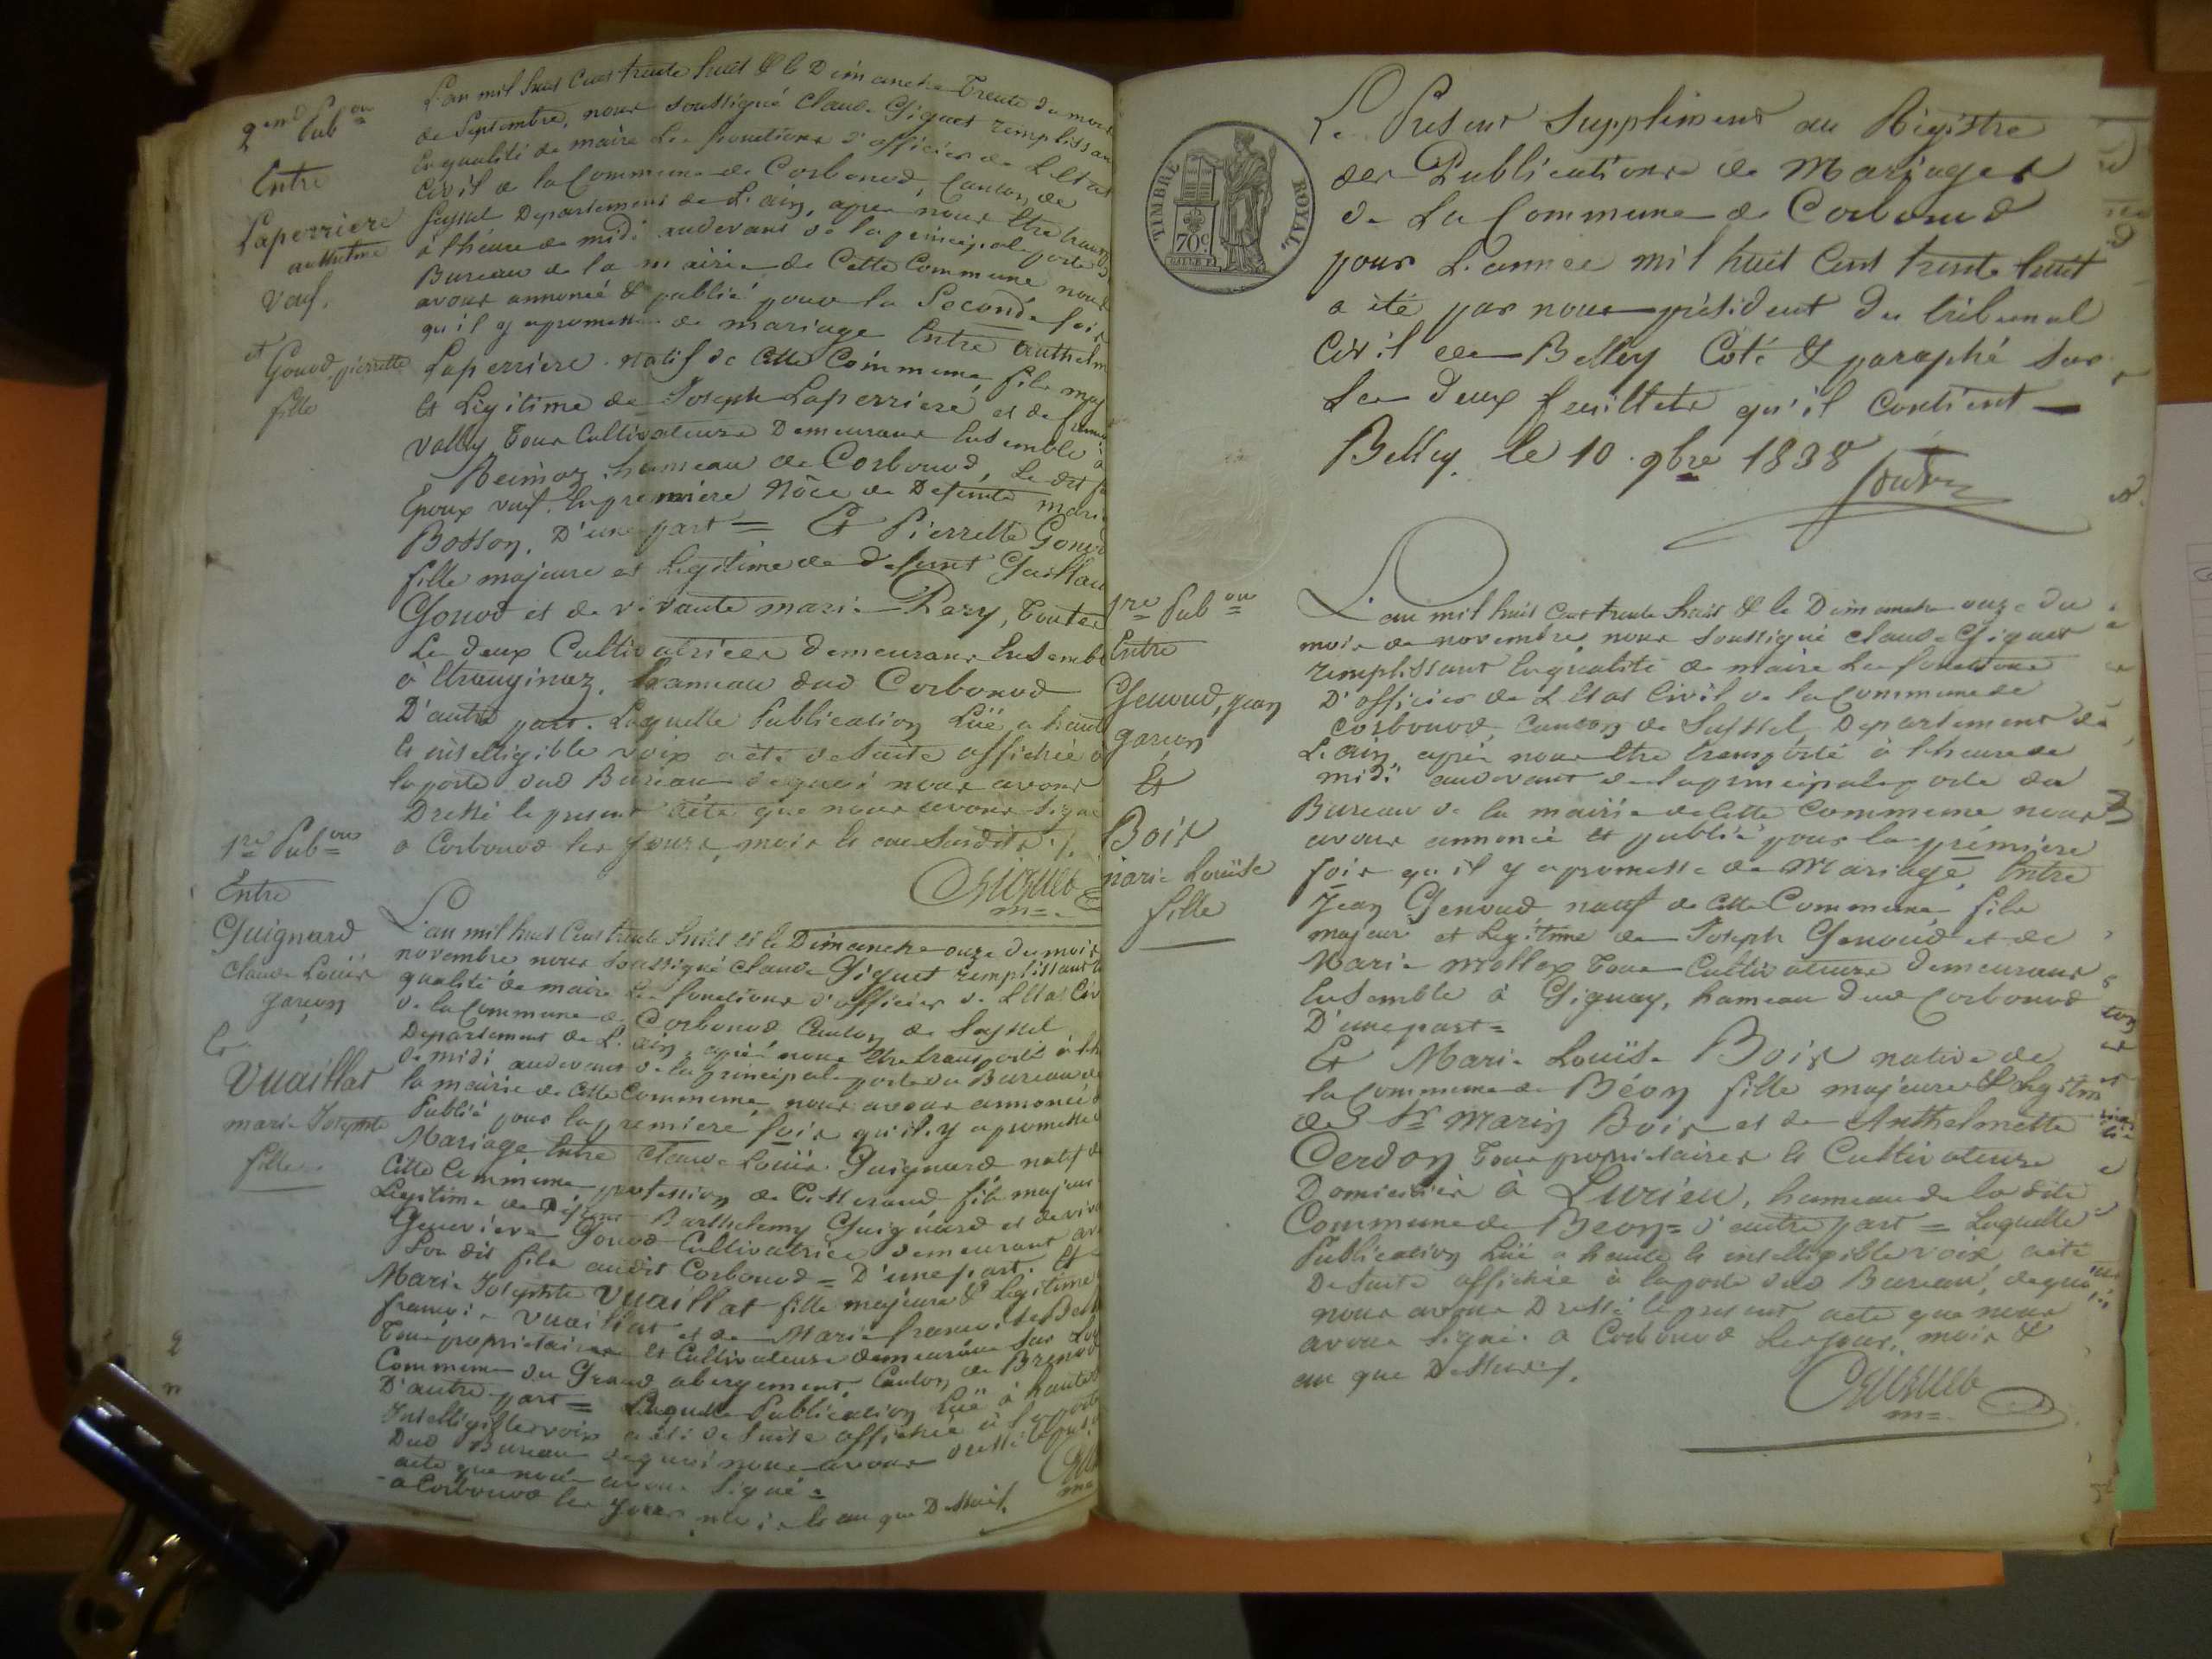 2.em Pub.on
Entre
Laperriere
anthelme
veuf.
et
Gonod pierrette
fille
L'an mil huit Cent trente huit & le Dimanche Trente du mois
de Septembre, nous soussigné Claude Giguet remplissan
En qualité de maire Les fonctions d'officier de L'Etat
Civil de la Commune de Corbonod, Canton de
Seyssel Departement de L'ain, apres nous Etre transp
à l'heure de midi audevant de la principale porte d
Bureau de la mairie de Cette Commune nous
avons annoncé & publié pour la Seconde fois
qu'il y a promesse de mariage Entre anthelm
Laperriere natif de Cette Commune, fils maj
et Légitime de Joseph Laperriere et de
Vally, Tous Cultivateurs Demeurans Ensemble à
hameau de Corbonod, Le dit
Epoux veuf En première Nôce de Defunte mari
Bosson, D'une part = Et Pierrette Gonod
fille majeure et Legitime de defunt Guillau
Gonod et de vivante marie Pery, Toutes
Les deux Cultivatrices demeurans Ensembl
à Etranginaz, hameau dud Corbonod
D'autre part. Laquelle Publication Lüe a haute
et intelligible voix a été de suite affichée à
la porte dud Bureau de quoi nous avons
Dressé le present acte que nous avons signé
a Corbonod les jours, mois et an susdits ./.
Giguet
m=.
1.re Pub.on
Entre
Guignard
Claude Louis
garçon
Et
Vuaillat
marie Josephte
fille
L'an mil huit Cent trente huit et le Dimanche onze du mois
novembre nous soussigné Claude Giguet remplissant
qualité de maire Les fonctions d'officier de L'Etat Civ
de la Commune de Corbonod Canton de Seyssel
Departement de L'ain, après nous Etre transporté à l'h
de midi audevant de la principale porte du Bureau de
la mairie de Cette Commune, nous avons annoncé
Publié pour la premiere fois qu'il y a promesse
Mariage Entre Claude Louis Guignard natif d
Cette Commune profession de Tisserand fils majeur
Legitime de defunt Barthelemy Guignard et de viv
Genevieve Gonod Cultivatrice demeurant av
Son dit fils audit Corbonod = D'une part. Et
Marie Josephte Vuaillat fille majeure & Legitime
francois Vuaillat et de Marie francoise
Tous proprietaires et Cultivateurs demeurans sur
Commune du Grand abergement, Canton de Brenod
D'autre part = Laquelle Publication Lüe à haute
Intelligible voix a été de Suite affichée à la porte
Dud Bureau de quoi nous avons dressé le pres
acte que nous avons signé =
a Corbonod les jours, mois et an que Dessus ./.
m=
Le Present Supplement au Régistre
des Publications de Mariages
de La Commune de Corbonod
pour L'année mil huit Cent trente huit
a été par nous président du tribunal
Civil de Belley Coté & paraphé sur
Les deux feuillets qu'il Contient —
Belley. le 10 9bre 1838
TIMBRE ROYAL
70c
1.re Pub.on
Entre
Genoud, jean
garçon
Et
Bois
marie Louïse
fille
L'an mil huit Cent trente huit & le Dimanche onze du
mois de novembre, nous soussigné Claude Giguet
remplissant En qualité de maire Les fonctions
D'officier de L'Etat Civil de la Commune de
Corbonod, Canton de Seyssel Departement de
L'ain après nous Etre transporté à l'heure de
midi audevant de la principale porte du
Bureau de la mairie de Cette Commune nous
avons annoncé Et publié pour la première
fois qu'il y a promesse de Mariage, Entre
Jean Genoud natif de Cette Commune fils
majeur et Legitime de Joseph Genoud et de
Marie Mollex Tous Cultivateurs demeurans
Ensemble à Gignay, hameau dud Corbonod
D'une part =
Et Marie Louïse Bois native de
la Commune de Béon fille majeure & Legitim
de Sr Marin Bois et de Anthelmette
Cerdon Tous proprietaires et Cultivateurs
Domiciliés à Lurieu, hameau de la dite
Commune de Beon = d'autre part = Laquelle
Publication Lüe a haute et intelligible voix a été
De Suite affichée à la porte dud Bureau, de quoi
nous avons Dressé le present acte que nous
avons signé. a Corbonod Les jour, mois &
an que Dessus ./.
Giguet
m=